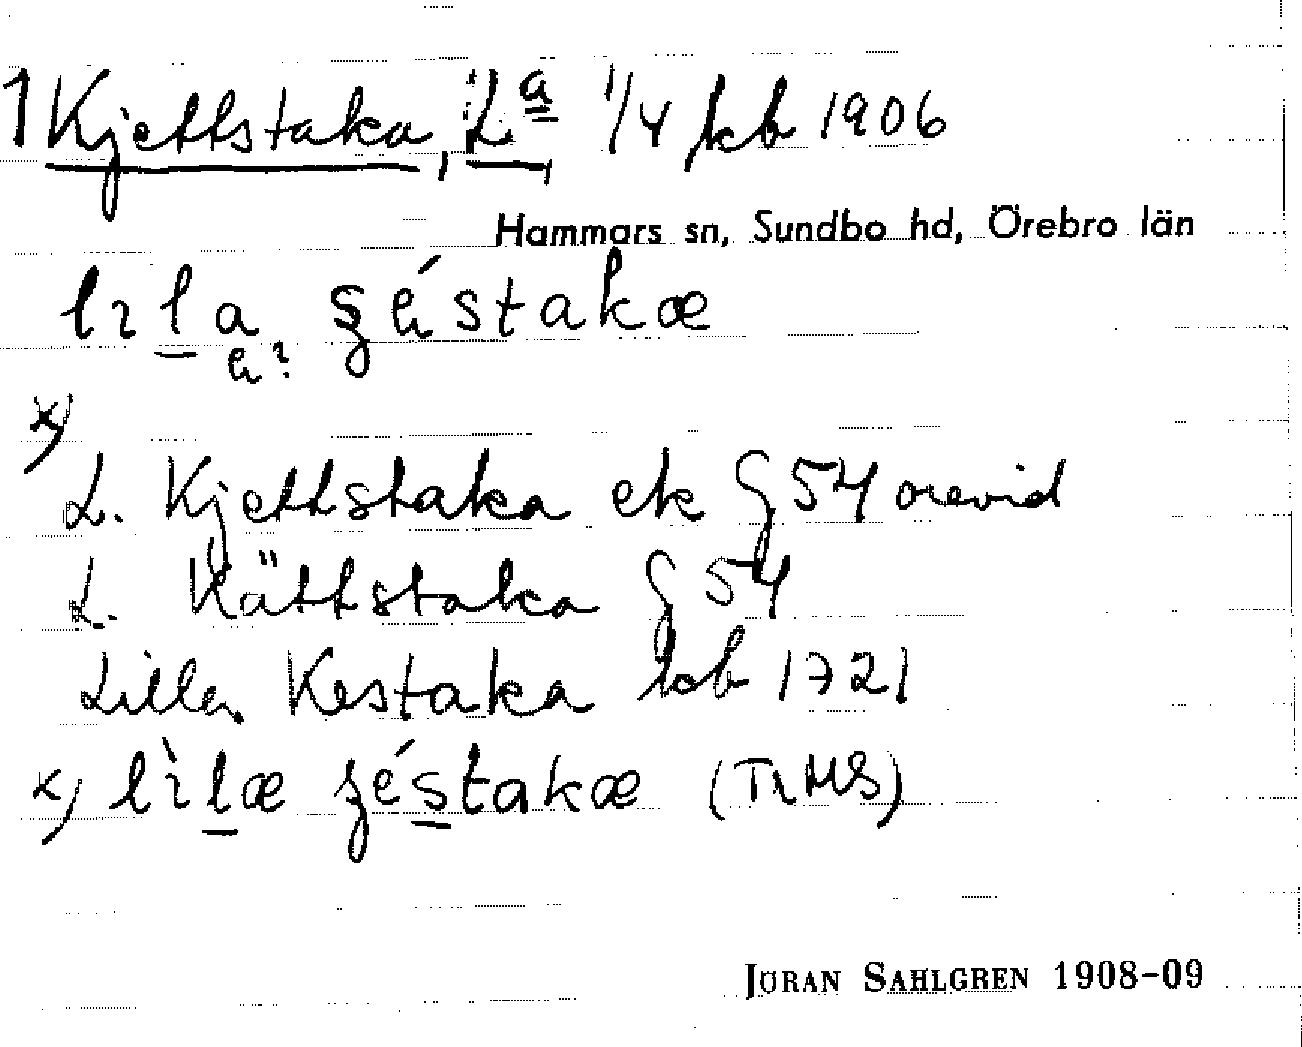 1 Kjettstaka, Lª 1/4 kb 1906
Hammars sn, Sundbo hd, Örebro län
lıla şéstakæ
a?
x)
L. Kjettstaka ek § 54 orevid
L. Kättstaka § 54
Lilla Kestaka kb 1721
x) lìlæ şéstakæ
JÖRAN SAHLGREN 1908-09